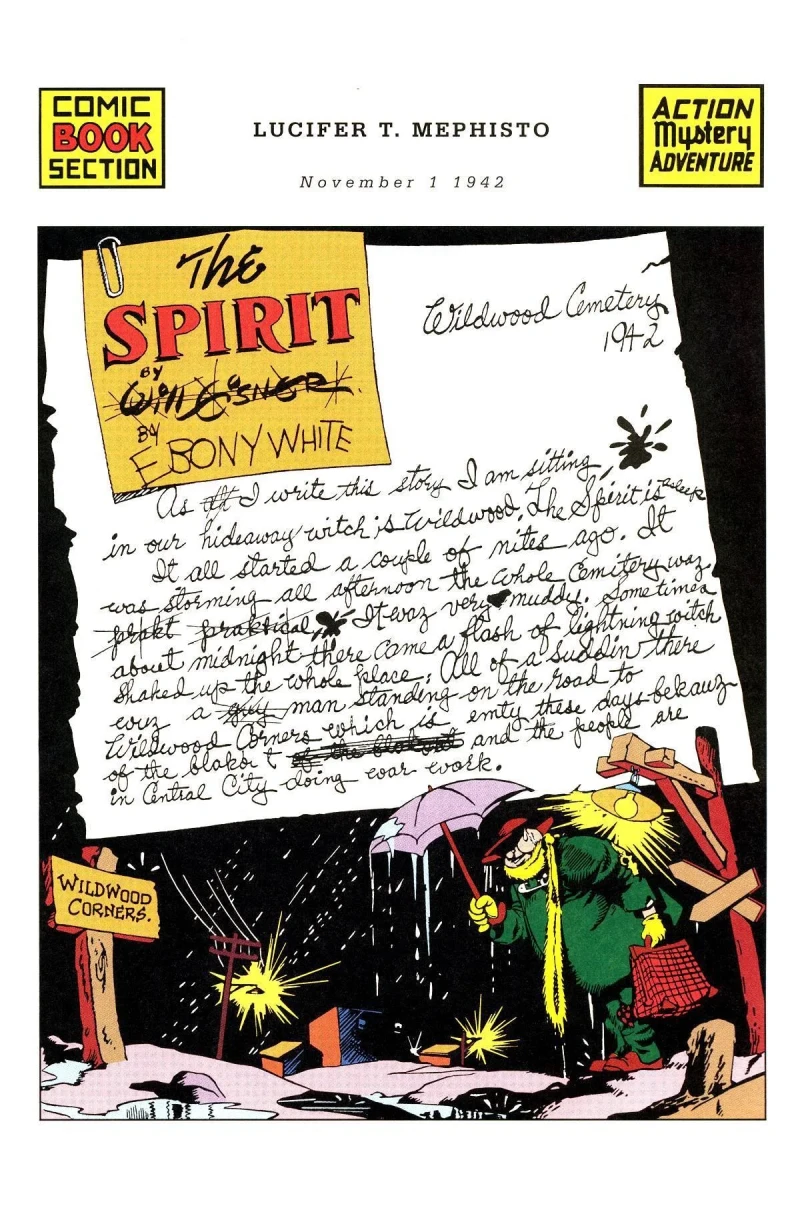 COMIC
BOOK
SECTION
LUCIFER T. MEPHISTO
November 1 1942
ACTION
Mystery
ADVENTURE
The
SPIRIT
BY
Will Eisner.
BY
EBONY WHITE
Wildwood Cemetery
1942
As I write this story I am sitting
in our hideaway witch is Wildwood. The Spirit is asleep
It all started a couple of nites ago. It
was storming all afternoon the whole Cemitery waz
prakt praktical It waz very muddy. Sometime
about midnight there came a flash of lightning witch
shaked up the whole place. All of a suddin there
wuz a guy man standing on the road to
Wildwood Corners which is emty these days bekauz
of the blakout of the blakout and the people are
in Central City doing war work.
WILDWOOD
CORNERS.